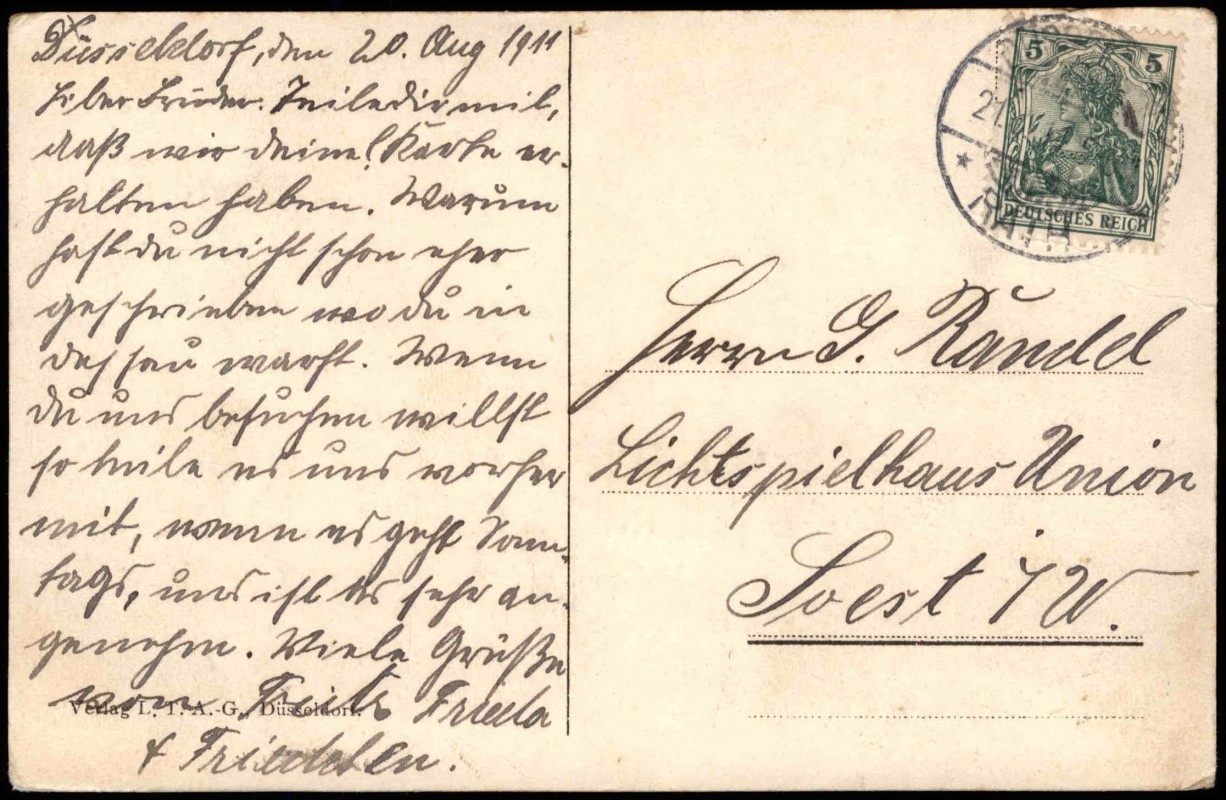 Düsseldorf, den 20. Aug 1911
Lieber Bruder. Teile dir mit,
daß wir deine Karte er-
halten haben. Warum
hast du nicht schon eher
geschrieben wo du in
Dessau warst. Wenn
du uns besuchen willst
so teile es uns vorher
mit, wenn es geht Sonn-
tags, uns ist es sehr an-
genehm. Viele Grüße
von Fritz Frieda
& Friedchen.
Verlag L. T. A.-G., Düsseldorf.
5 5
DEUTSCHES REICH
RATH
Herrn G. Raudel
Lichtspielhaus Union
Soest i/W.